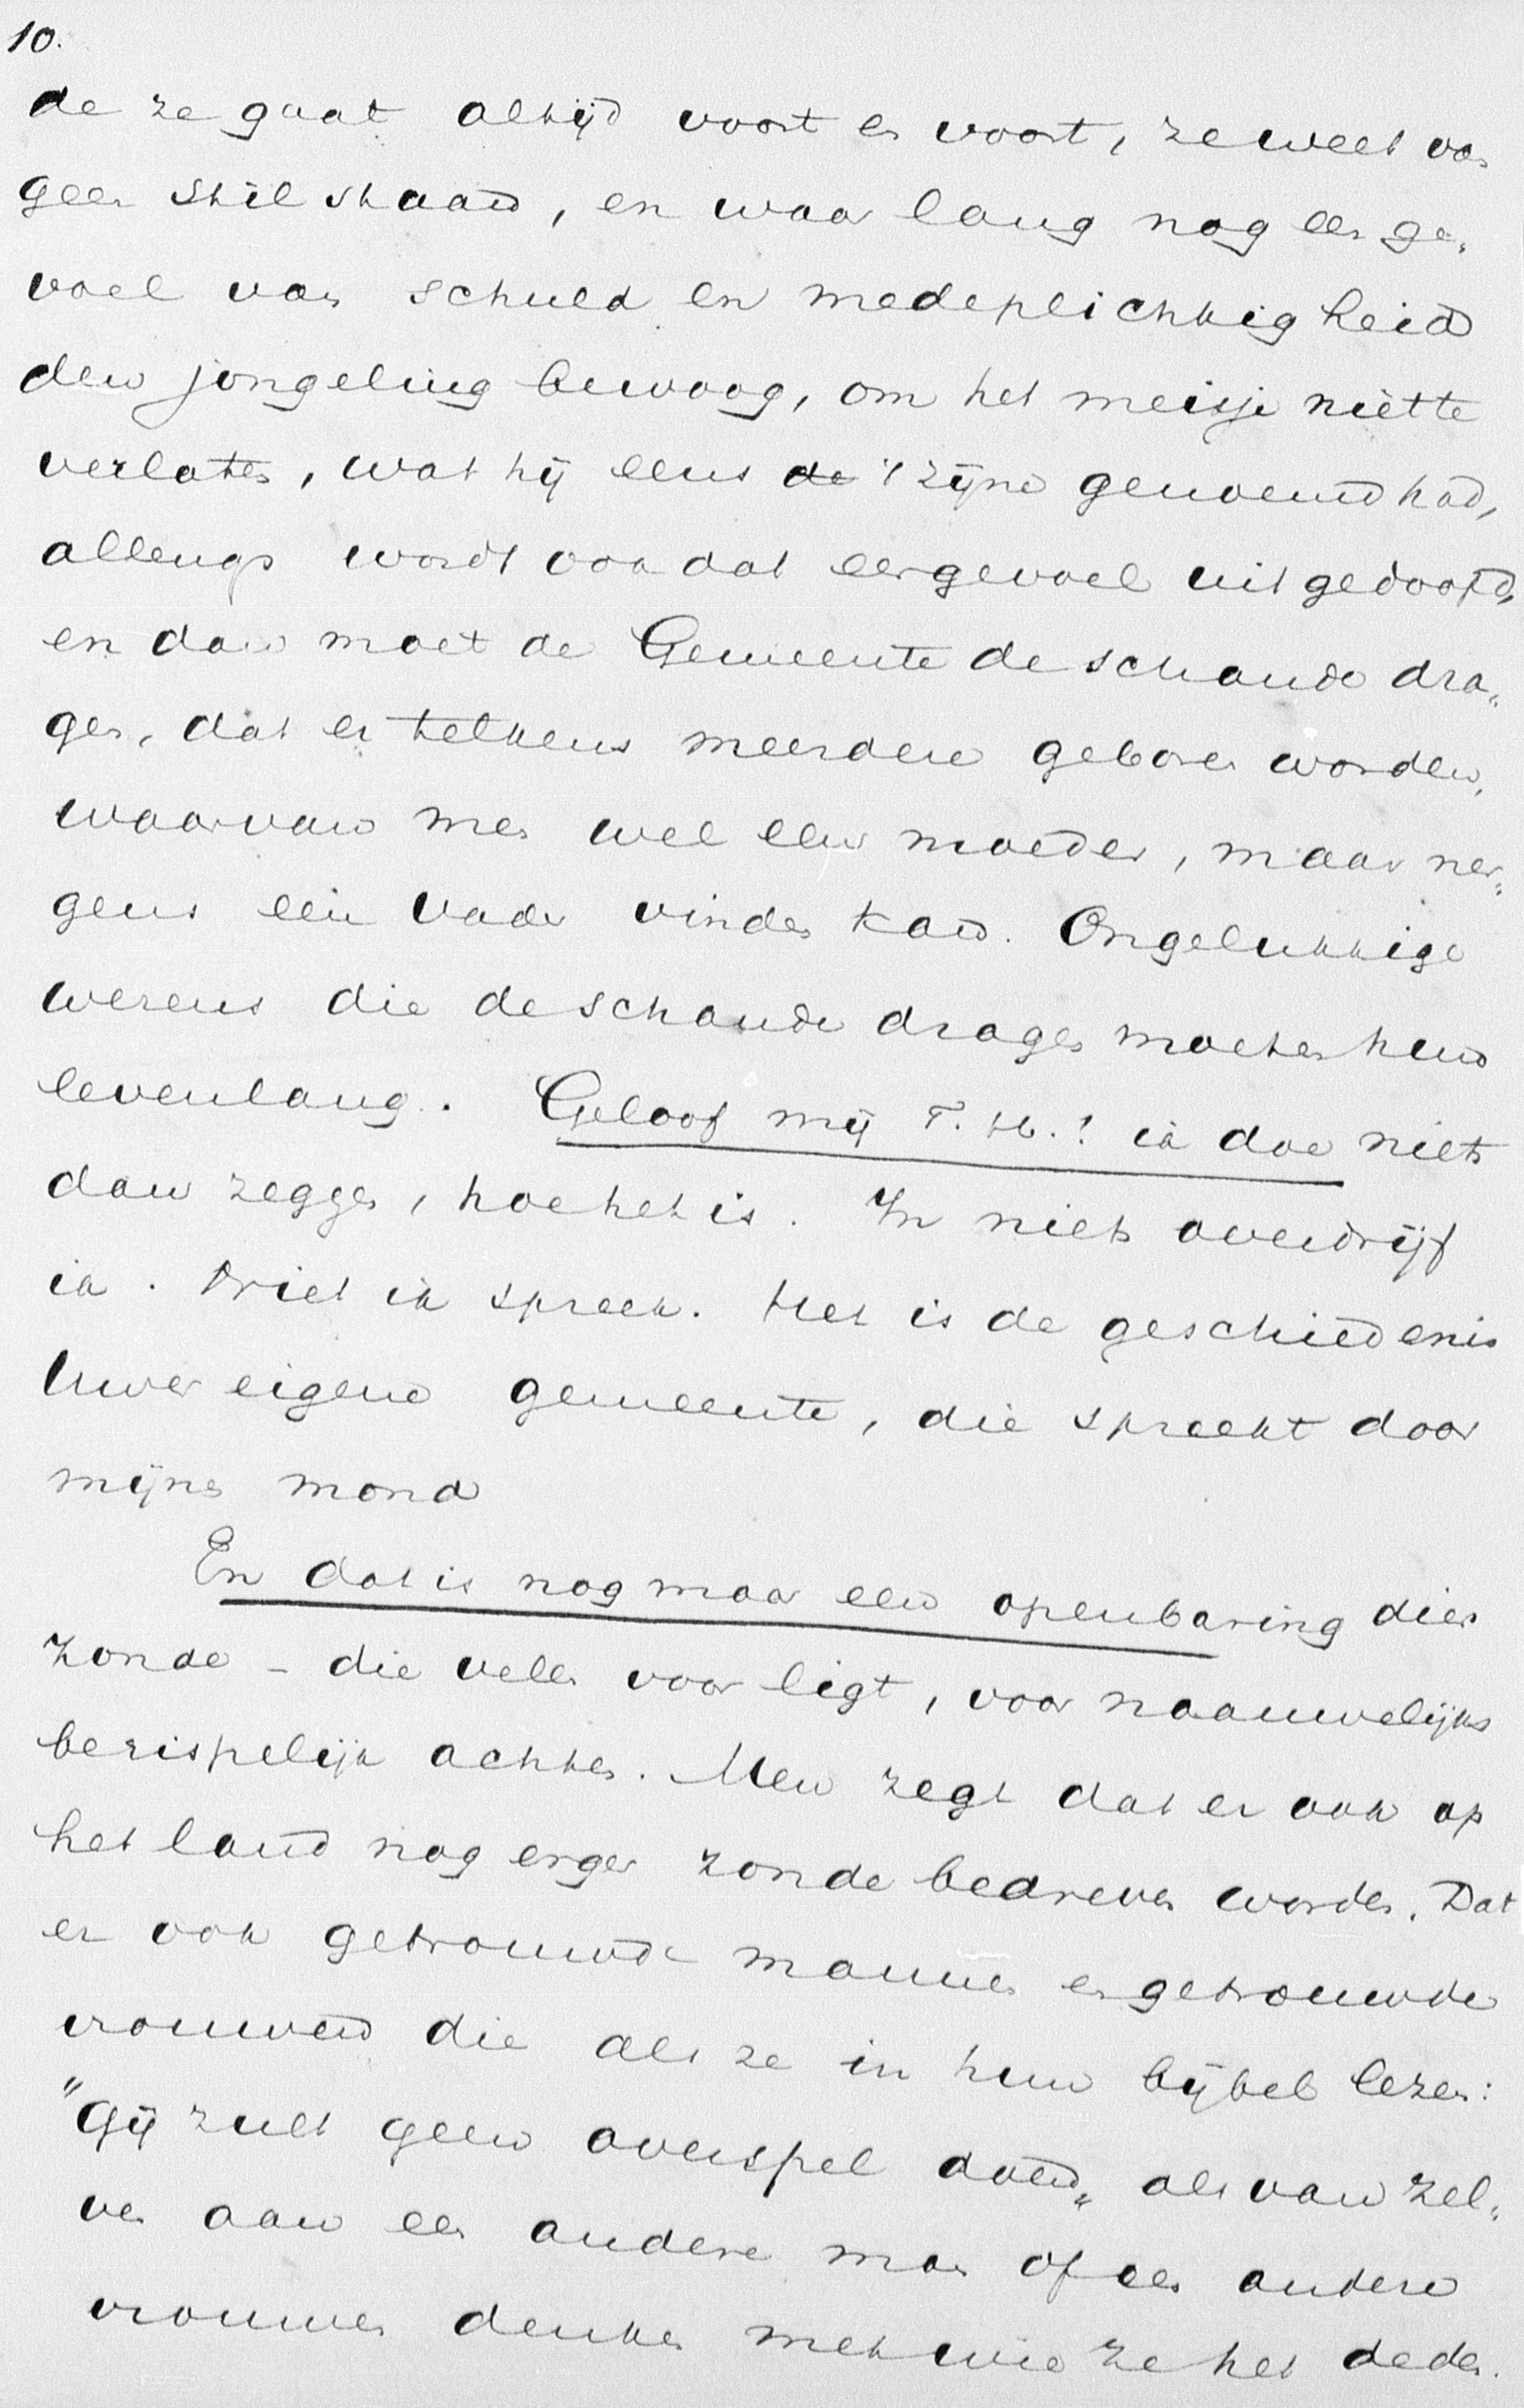 10.
de ze gaat altijd voort en voort, ze weet van
geen stilstaan, en waar lang nog een ge„
voel van schuld en medeplichtigheid
den jongeling bewoog, om het meisje niet te
verlaten, wat hij eens de 't zijne genoemd had,
allengs wordt ook dat eergevoel uitgedoofd,
en dan moet de Gemeente de schande dra„
gen, dat er telkens meerdere geboren worden,
waarvan men wel een moeder, maar ner„
gens een vader vinden kan. Ongelukkige
wezens die de schande dragen moeten hun
levenlang. Geloof mij T. H.! ik doe niets
dan zeggen, hoe het is. In niets overdrijf
ik. Niet ik spreek. Het is de geschiedenis
Uwer eigene gemeente, die spreekt door
mijnen mond
En dat is nog maar een openbaring dier
zonde – die velen voor ligt, voor naauwelijks
berispelijk achten. Men zegt dat er ook op
het land nog erger zonde bedreven worden. Dat
er ook getrouwde mannen en getrouwde
vrouwen die als ze in hun bijbel lezen:
"Gij zult geen overspel doen„ als van zel„
ven aan een andere man of een andere
vrouwen denken met wie ze het deden.